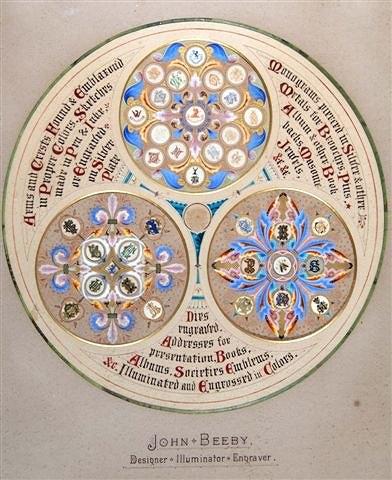 Arms and Crests Found & Emblazond
in Proper Colors, Sketches
made in Pen & Ink
or Engraved
on Silver
Plate
Monograms pierced in Silver & other
Metals for Brooches, Pins,
Album & other Book
backs, Masonic
Jewels
&c. &c.
Dies
engraved.
Addresses for
presentation, Books,
Albums, Societies Emblems,
&c. Illuminated and Engrossed in Colors.
JOHN BEEBY,
Designer Illuminator Engraver.